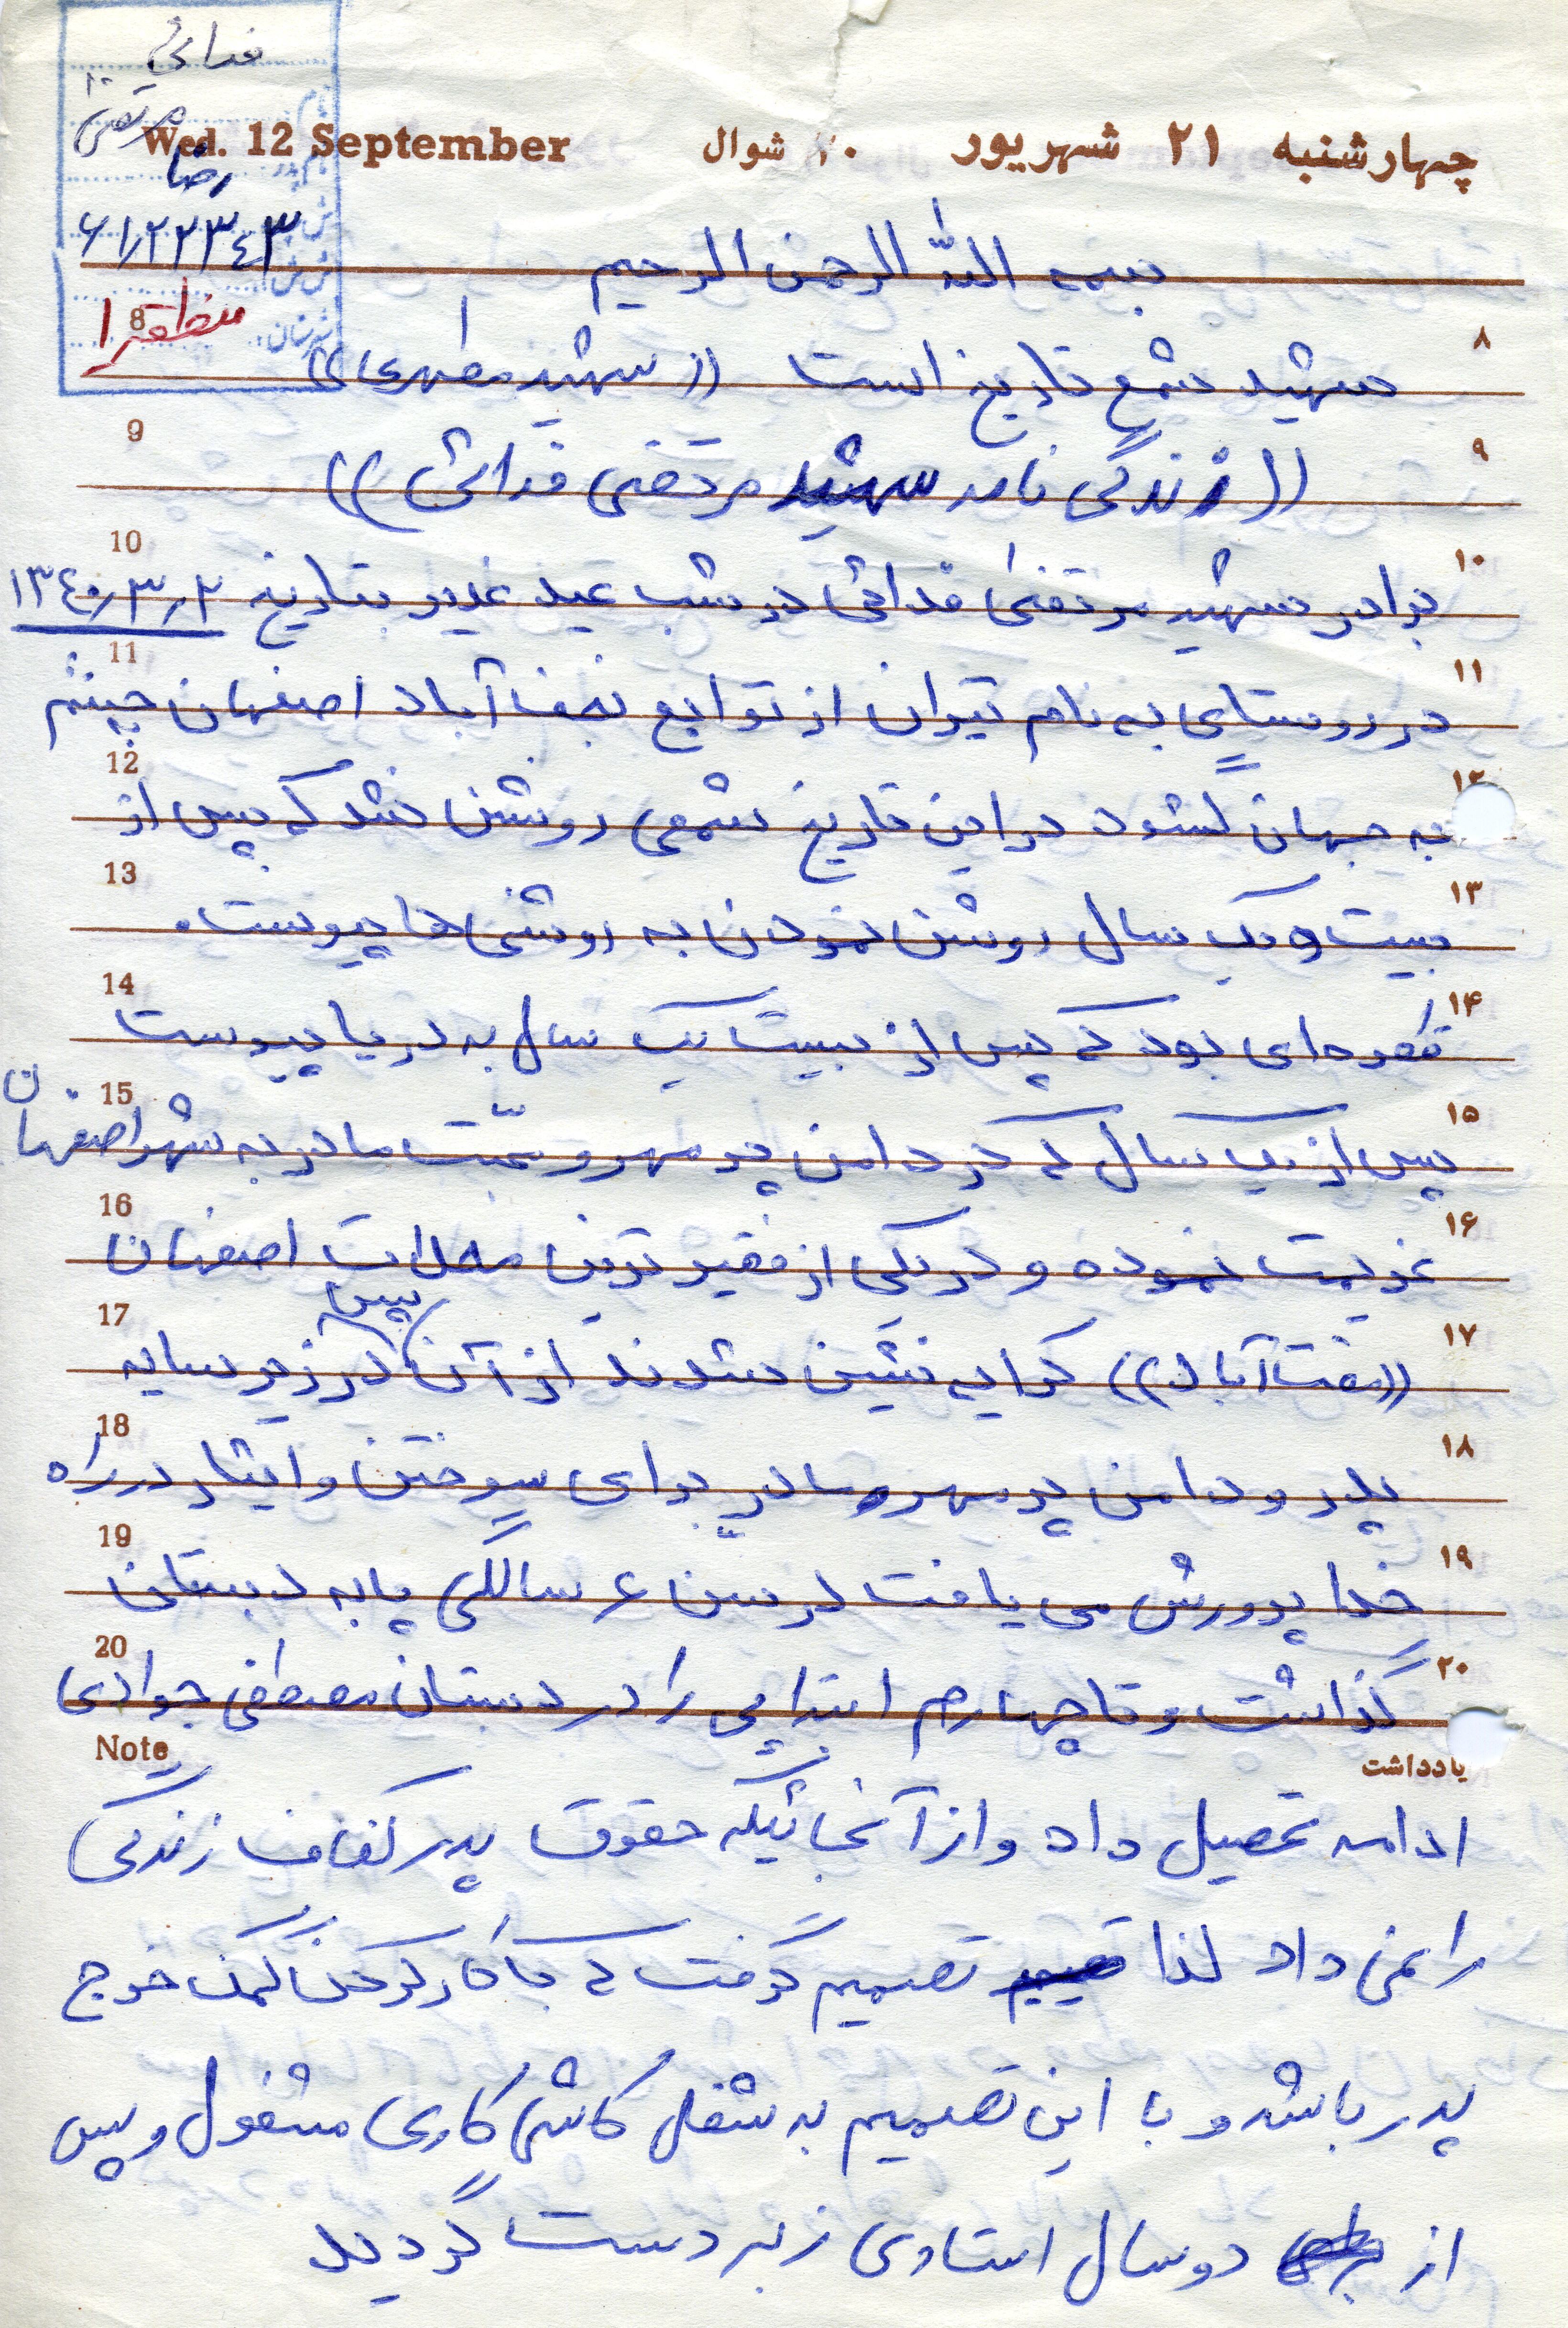 فدائی
نام
مرتضی
نام پدر
رضا
ش
۶۱٫۲۲۳۴۳
ش ش
منطقه ۱
Wed. 12 September
چهارشنبه ۲۱ شهریور ۲۰ شوال
بسمه الله الرحمن الرحیم
8 ۸
شهید شمع تاریخ است ((شهید مطهری))
9 ۹
((زندگی نامه شهید مرتضی فدائی))
10 ۱۰
برادر شهید مرتضی فدائی در شب عید غدیر بتاریخ ۱۳۴۰٫۳٫۲
11 ۱۱
در روستای به نام تیران از توابع نجف آباد اصفهان چشم
12 ۱۲
به جهان گشود در این تاریخ شمعی روشن شد که پس از
13 ۱۳
بیست و یک سال روشن نمودن به روشنی ها پیوست.
14 ۱۴
قطره ای بود که پس از بیست یک سال به دریا پیوست
15 ۱۵
پس از یک سال که در دامن پر مهر و محبّت مادر به شهر اصفهان
16 ۱۶
عزیمت نموده و در یکی از فقیر ترین محلات اصفهان
17 ۱۷
((مفت آباد)) کرایه نشین شدند پس از آن در زیر سایه
18 ۱۸
پدر و دامن پر مهر مادر برای سوختن و ایثار در راه
19 ۱۹
خدا پرورش می یافت در سن ۶ سالگی پا به دبستان
20 ۲۰
گذاشت و تا چهارم ابتدایی را در دبستان مصطفی جوادی
Note یادداشت
ادامه تحصیل داد و از آنجائیکه حقوق پدر کفاف زندگی
را نمی داد لذا تصمیم گرفت که با کار کردن کمک خرج
پدر باشد و با این تصمیم به شغل کاشی کاری مشغول و پس
از دو سال استادی زبردست گردید